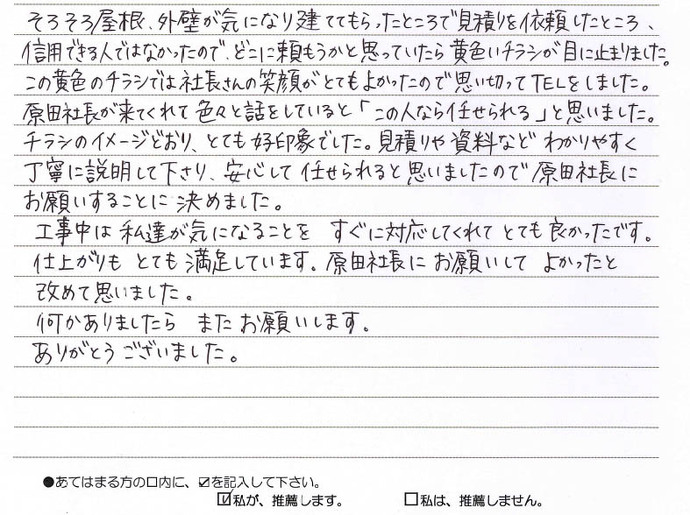 そろそろ屋根、外壁が気になり建ててもらったところで見積りを依頼したところ、
信用できる人ではなかったので、どこに頼もうかと思っていたら黄色いチラシが目に止まりました。
この黄色のチラシでは社長さんの笑顔がとてもよかったので思い切ってTELをしました。
原田社長が来てくれて色々と話をしていると「この人なら任せられる」と思いました。
チラシのイメージどおり、とても好印象でした。見積りや資料など わかりやすく
丁寧に説明して下さり、安心して任せられると思いましたので原田社長に
お願いすることに決めました。
工事中は私達が気になることを すぐに対応してくれて とても良かったです。
仕上がりも とても満足しています。原田社長にお願いして よかったと
改めて思いました。
何かありましたら またお願いします。
ありがとうございました。
●あてはまる方の口内に、☑を記入して下さい。
☑私が、推薦します。 □私は、推薦しません。